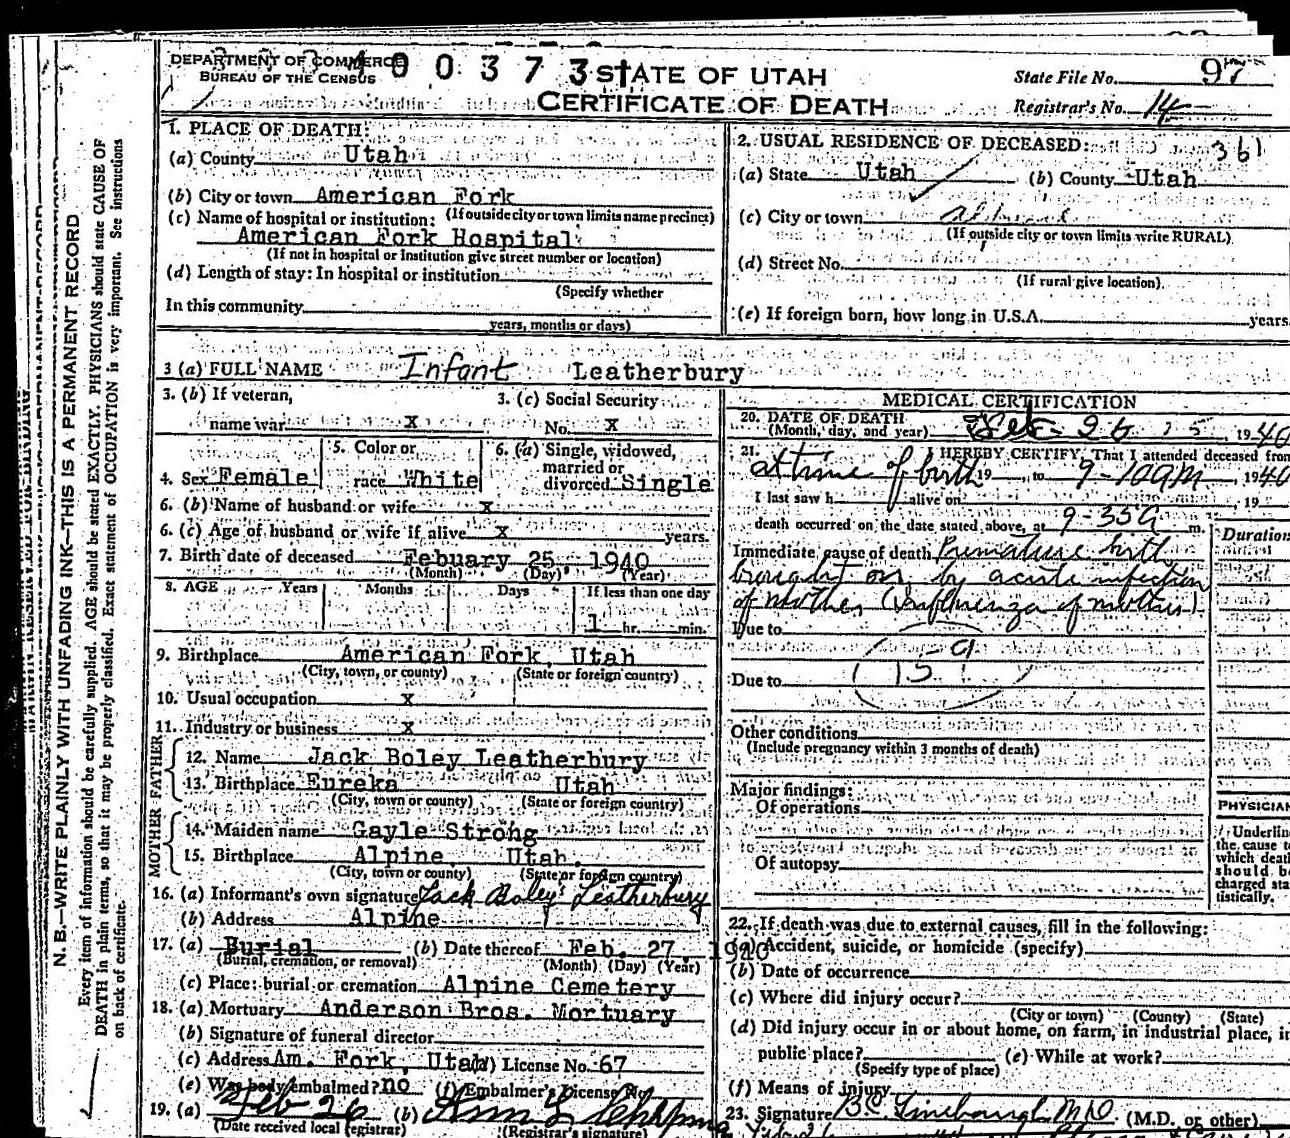 DEPARTMENT OF COMMERCE
BUREAU OF THE CENSUS
400373
STATE OF UTAH
CERTIFICATE OF DEATH
State File No. 97
Registrar's No. 14
1. PLACE OF DEATH:
(a) County Utah
(b) City or town American Fork
(If outside city or town limits name precinct)
(c) Name of hospital or institution:
American Fork Hospital
(If not in hospital or institution give street number or location)
(d) Length of stay: In hospital or institution
(Specify whether
In this community
years, months or days)
2. USUAL RESIDENCE OF DECEASED: 361
(a) State Utah (b) County Utah
(c) City or town
(If outside city or town limits write RURAL)
(d) Street No.
(If rural give location)
(e) If foreign born, how long in U.S.A. years
3 (a) FULL NAME Infant Leatherbury
3. (b) If veteran,
name war X
3. (c) Social Security
No. X
4. Sex Female
5. Color or
race White
6. (a) Single, widowed,
married or
divorced Single
6. (b) Name of husband or wife X
6. (c) Age of husband or wife if alive X years.
7. Birth date of deceased Febuary 25 1940
(Month) (Day) (Year)
8. AGE Years Months Days If less than one day
1 hr. min.
9. Birthplace American Fork, Utah
(City, town, or county) (State or foreign country)
10. Usual occupation X
11. Industry or business X
FATHER
12. Name Jack Boley Leatherbury
13. Birthplace Eureka Utah
(City, town or county) (State or foreign country)
MOTHER
14. Maiden name Gayle Strong
15. Birthplace Alpine, Utah.
(City, town or county) (State or foreign country)
16. (a) Informant's own signature Jack Boley Leatherbury
(b) Address Alpine
17. (a) Burial (b) Date thereof Feb. 27, 1940
(Burial, cremation, or removal) (Month) (Day) (Year)
(c) Place: burial or cremation Alpine Cemetery
18. (a) Mortuary Anderson Bros. Mortuary
(b) Signature of funeral director
(c) Address Am. Fork, Utah (d) License No. 67
(e) Was body embalmed? no (f) Embalmer's License No.
19. (a) Feb 26 (b)
(Date received local registrar) (Registrar's signature)
MEDICAL CERTIFICATION
20. DATE OF DEATH
(Month, day, and year) 1940
21. I HEREBY CERTIFY, That I attended deceased from
at time of birth 19 , to 9-10am , 1940
I last saw h alive on , 19
death occurred on the date stated above, at 9-35a m.
Duration
Immediate cause of death Premature birth
brought on by acute infection
of mother (Influenza of mother).
Due to
159
Due to
Other conditions
(Include pregnancy within 3 months of death)
Major findings:
Of operations
Of autopsy
PHYSICIAN
Underline
the cause to
which death
should be
charged sta
tistically.
22. If death was due to external causes, fill in the following:
(a) Accident, suicide, or homicide (specify)
(b) Date of occurrence
(c) Where did injury occur?
(City or town) (County) (State)
(d) Did injury occur in or about home, on farm, in industrial place, in
public place? (e) While at work?
(Specify type of place)
(f) Means of injury
23. Signature (M.D. or other)
N. B.—WRITE PLAINLY WITH UNFADING INK—THIS IS A PERMANENT RECORD
Every item of information should be carefully supplied. AGE should be stated EXACTLY. PHYSICIANS should state CAUSE OF
DEATH in plain terms, so that it may be properly classified. Exact statement of OCCUPATION is very important. See instructions
on back of certificate.